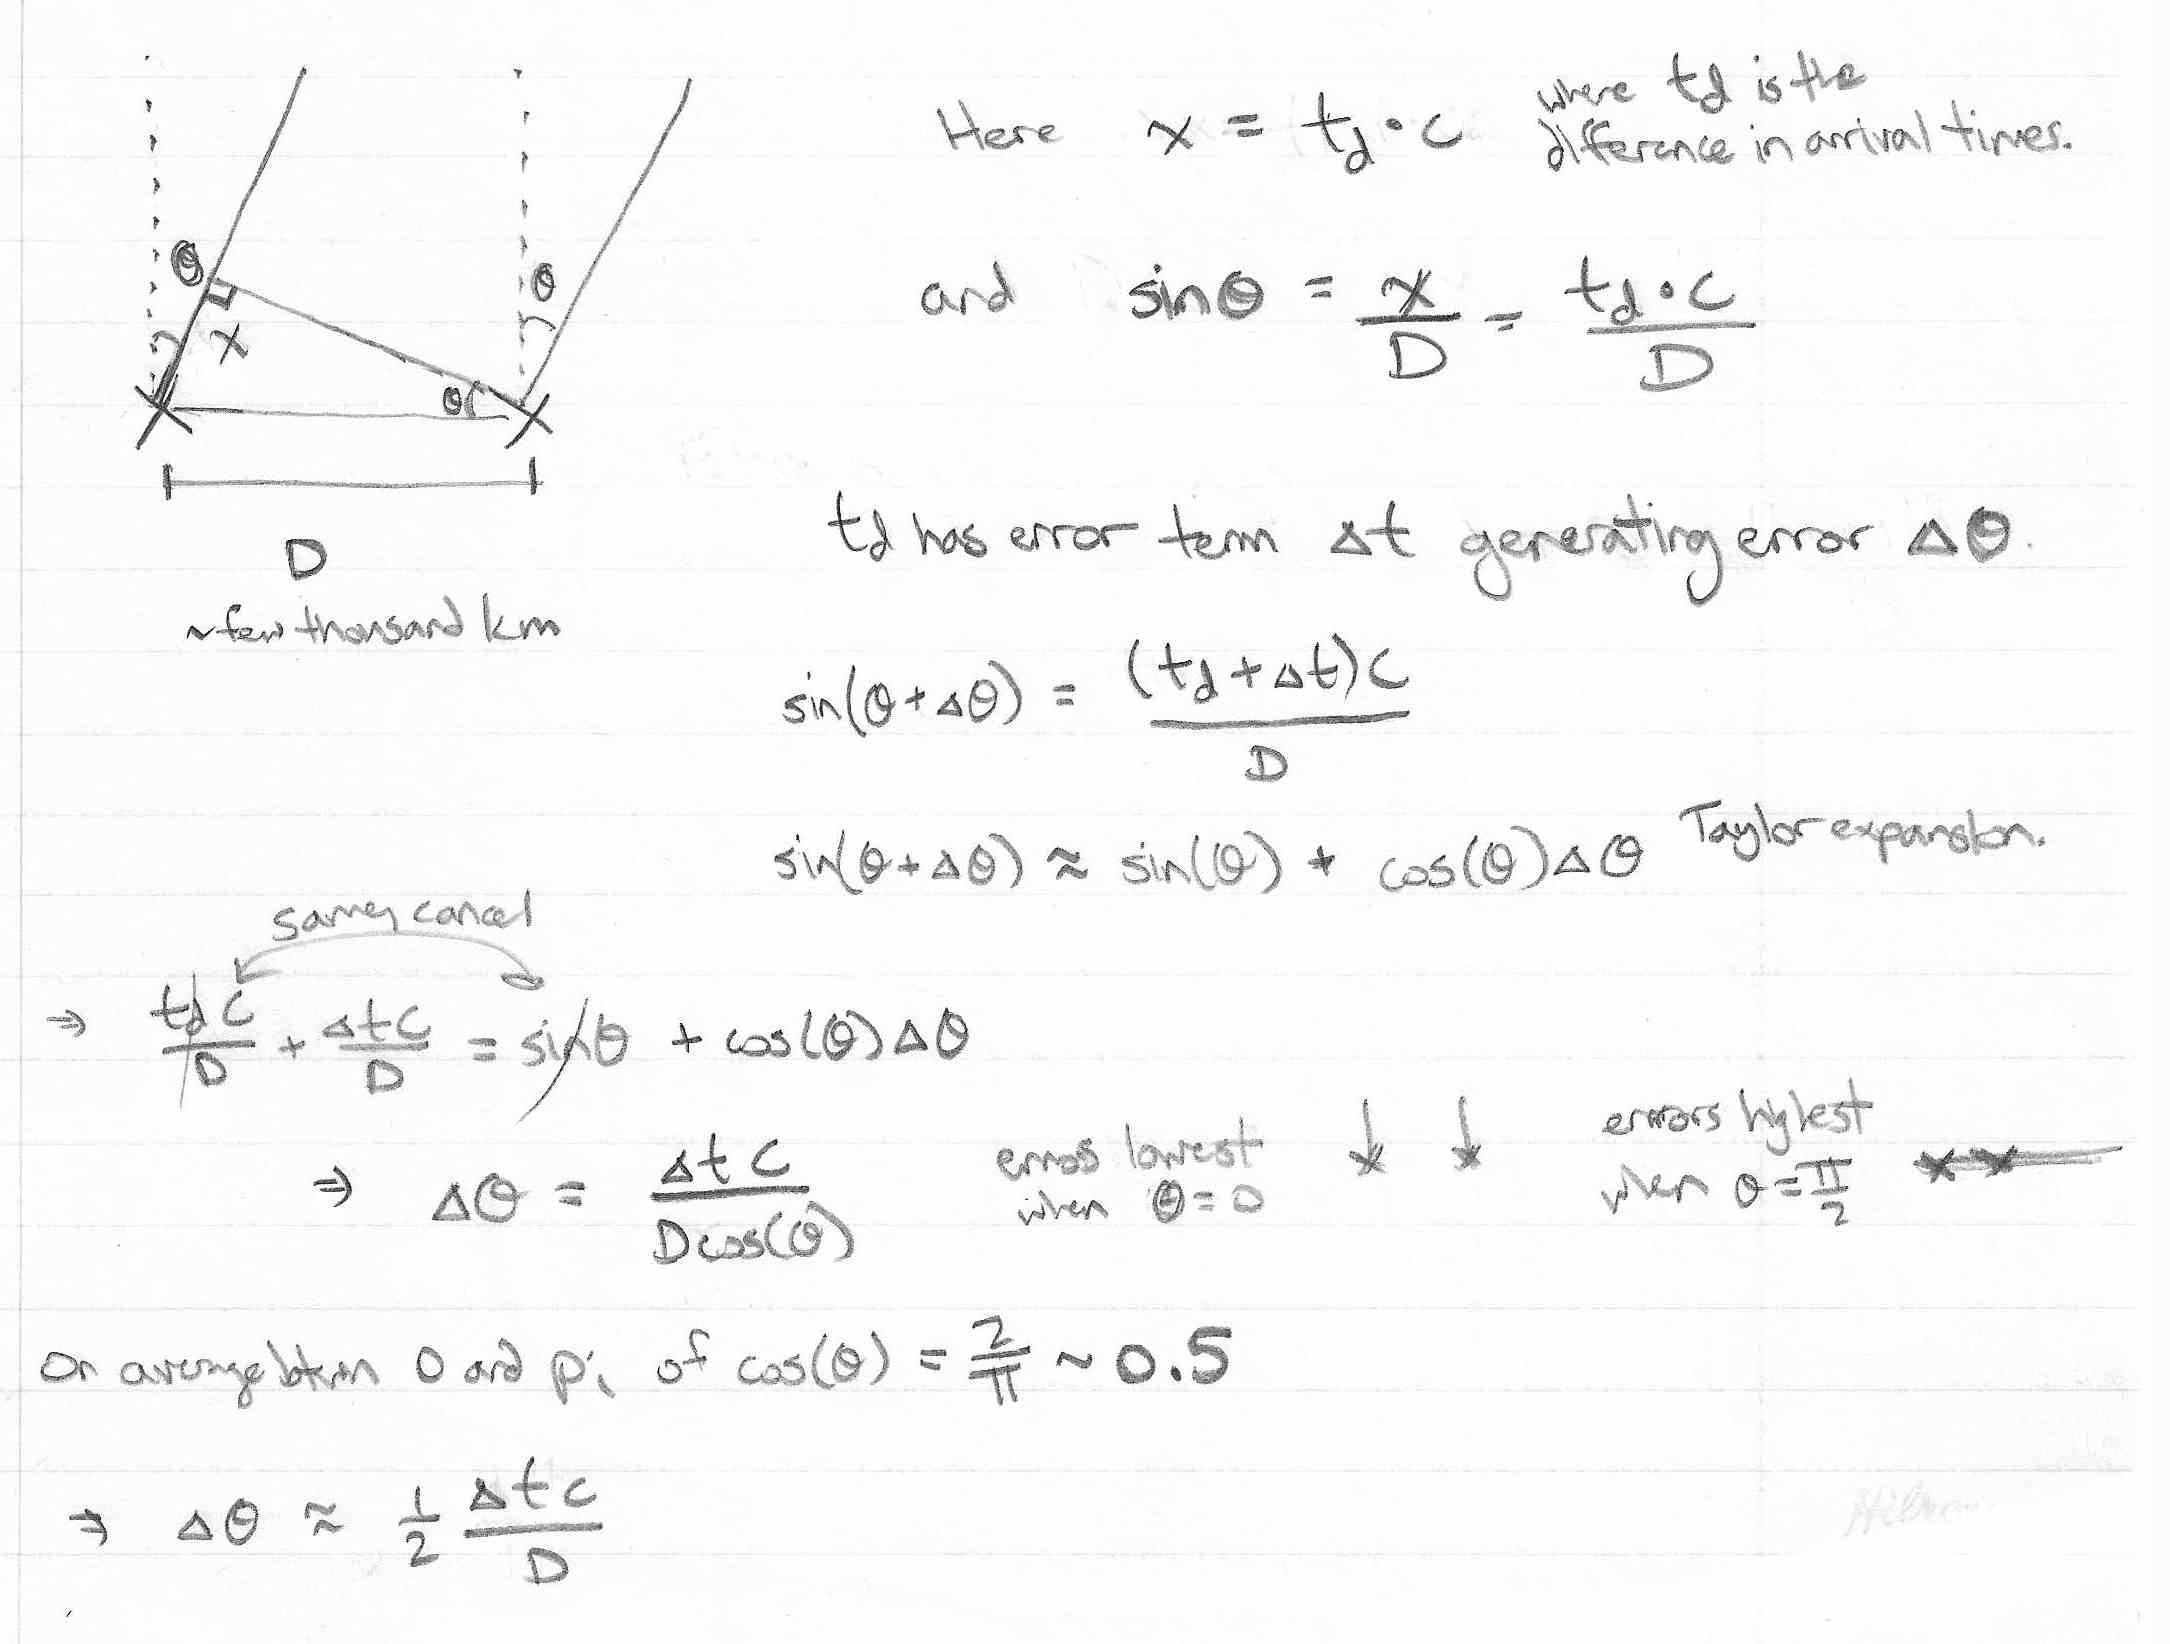 Here x = t_d · c where t_d is the
difference in arrival times.
θ
θ
x
θ
and sinθ = x/D = t_d · c / D
D
~ few thousand km
t_d has error term Δt generating error Δθ.
sin(θ+Δθ) = (t_d + Δt)c / D
sin(θ+Δθ) ≈ sin(θ) + cos(θ)Δθ Taylor expansion.
same, cancel
⇒ t_d c / D + Δt c / D = sinθ + cos(θ)Δθ
⇒ Δθ = Δt c / D cos(θ)
errors lowest
when θ = 0
errors highest
when θ = π/2
On average btwn 0 and pi of cos(θ) = 2/π ~ 0.5
⇒ Δθ ≈ 1/2 Δt c / D